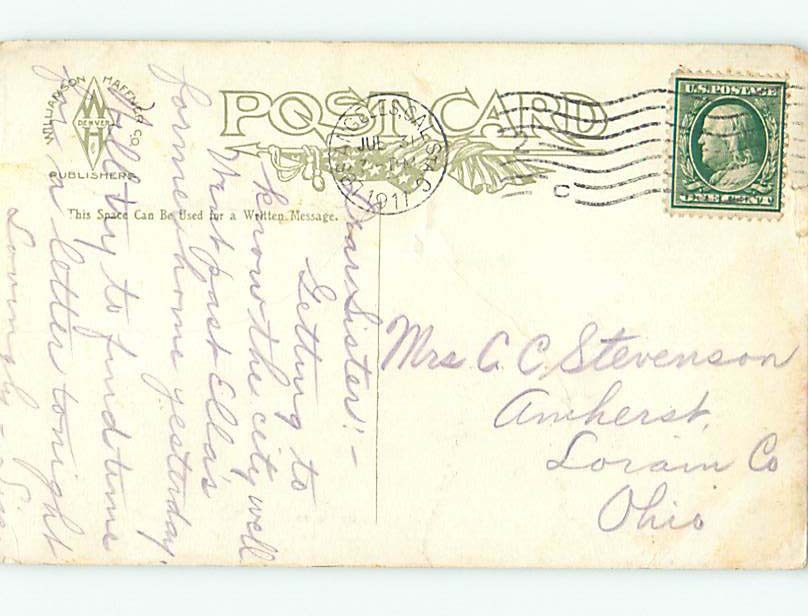 WILLIAMSON HAFFNER CO.
DENVER
PUBLISHERS
POST CARD
LOS ANGELES, CAL. STA. C
JUL
1911
C
U.S. POSTAGE
This Space Can Be Used for a Written Message.
Dear Sister:-
Getting to
know the city well
Went past Ella's
former home yesterday.
Will try to find time
for a letter tonight
Lovingly - Sis
Mrs C. C Stevenson
Amherst,
Lorain Co
Ohio